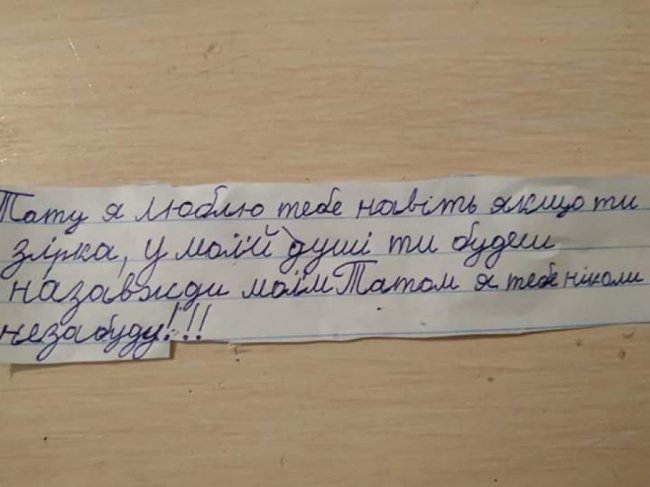 Тату я люблю тебе навіть якщо ти
зірка, у моїй душі ти будеш
назавжди моїм Татом я тебе ніколи
незабуду!!!